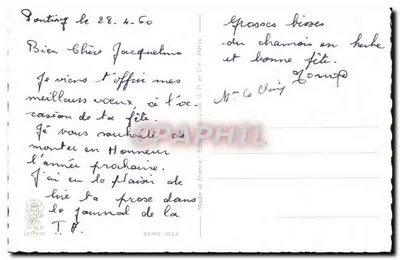 Pontivy le 28-4-60
Bien Chère Jacqueline
Je viens t'offrir mes
meilleurs voeux, à l'oc
casion de ta fête.
Je vous souhaite de
monter en Honneur
l'année prochaine.
J'ai eu le plaisir de
lire ta prose dans
le journal de la
T.A.
Grosses bises
du chamois en herbe
et bonne fête.
Made in France
CPAPHIL